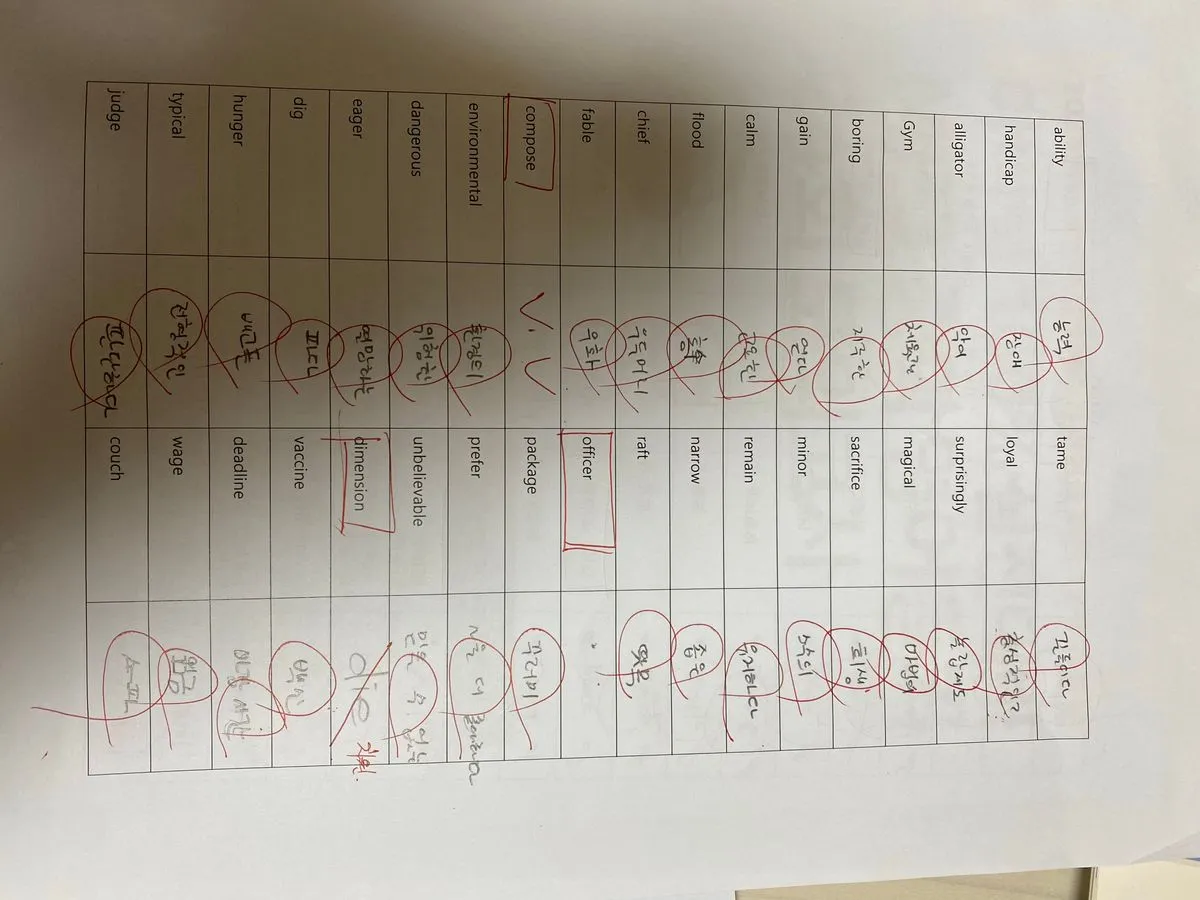 ability 능력 tame 길들이다
handicap 장애 loyal 충성적인
alligator 악어 surprisingly 놀랍게도
Gym 체육관 magical 마법의
boring 지루한 sacrifice 희생
gain 얻다 minor 소수의
calm 고요한 remain 유지하다
flood 홍수 narrow 좁은
chief 우두머리 raft 뗏목
fable 우화 officer
compose package 꾸러미
environmental 환경의 prefer 더
dangerous 위험한 unbelievable 믿을 수 없는
eager 열망하는 dimension 차원
dig 파다 vaccine 백신
hunger 배고픈 deadline 마감 시간
typical 전형적인 wage 임금
judge 판단하다 couch 소파